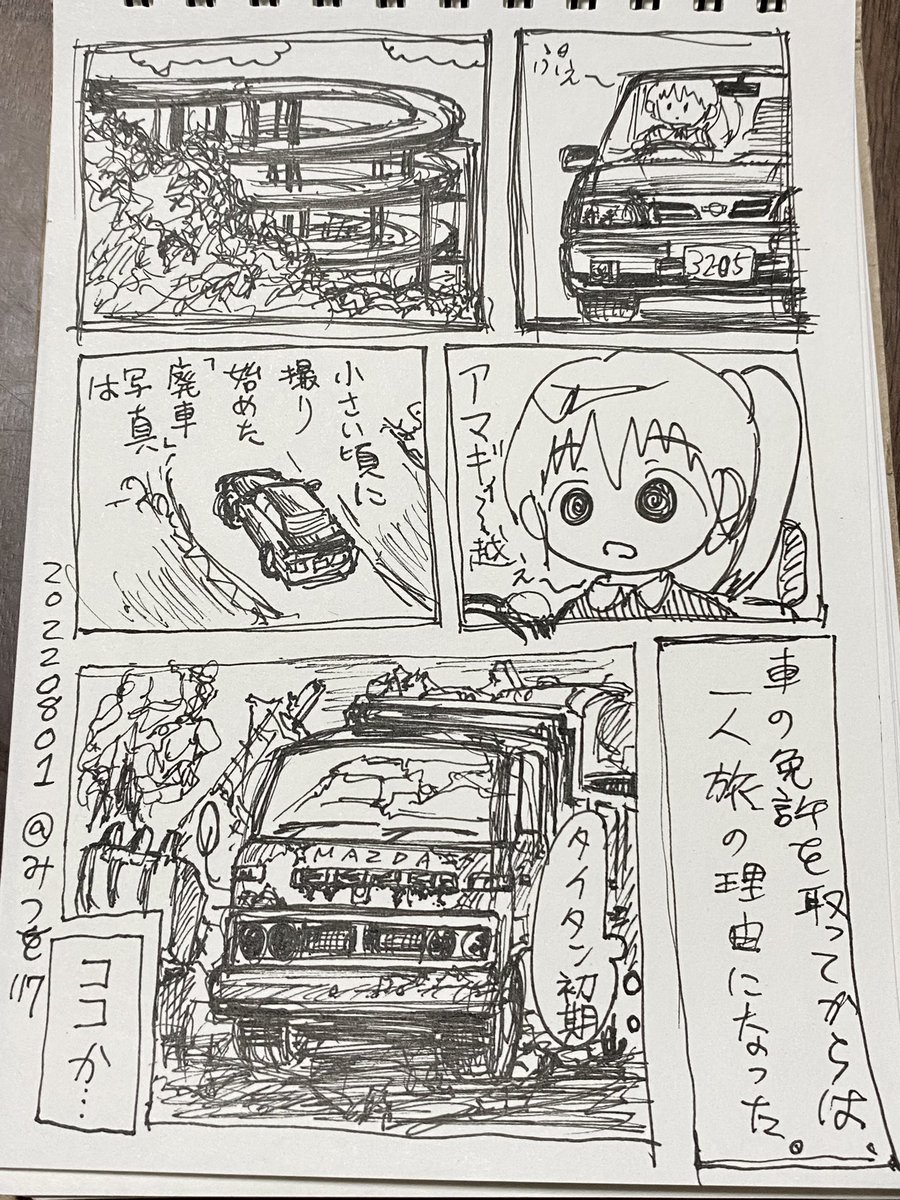 3205
アマギィ〜越
ぇ〜
小さい頃に
撮り
始めた
「廃車」
写真
は
車の免許を取ってからは、
一人旅の理由になった。
MAZDA
タイタン初期
ココか…
20220801 @みつを117